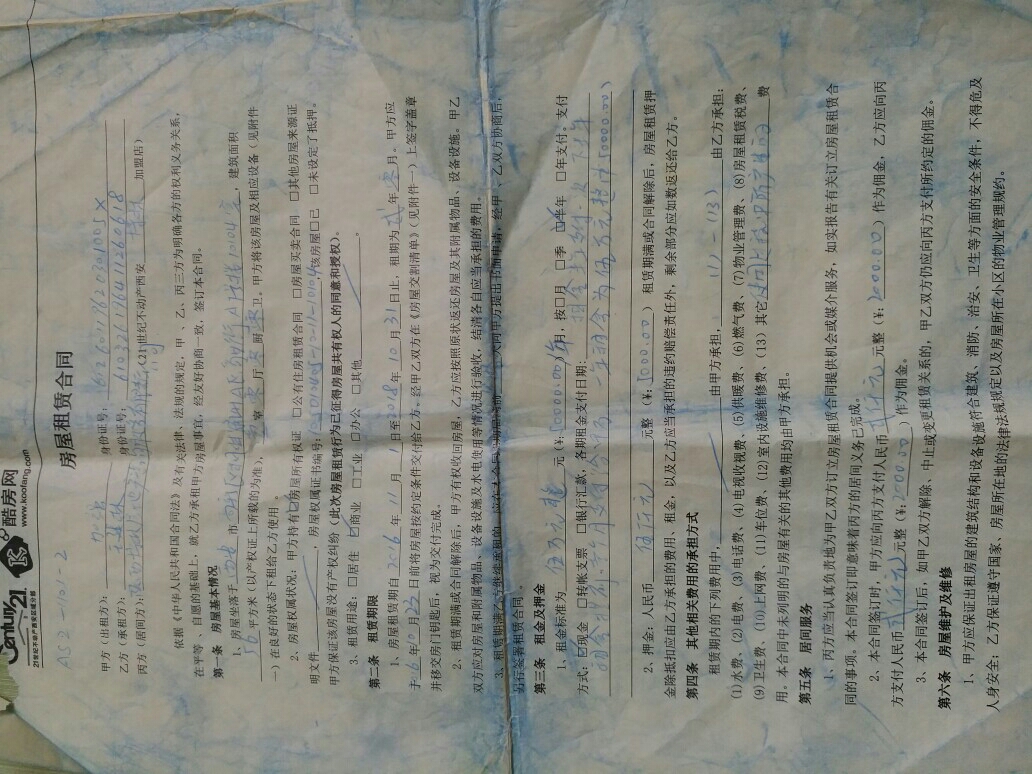 Century 21 酷房网
21世纪不动产西安区域分部 www.koofang.com
AS2-10.1-2
房屋租赁合同
甲方（出租方）： 身份证号：
乙方（承租方）： 身份证号：
丙方（居间方）： （21世纪不动产西安 加盟店）
依据《中华人民共和国合同法》及有关法律、法规的规定，甲、乙、丙三方为明确各方的权利义务关系，
在平等、自愿的基础上，就乙方承租甲方房屋事宜，经友好协商一致，签订本合同。
第一条 房屋基本情况
1、房屋坐落于 市 室 厅 厨 卫，建筑面积
56 平方米（以产权证上所载的为准），甲方将该房屋及相应设备（见附件
一）在良好的状态下租给乙方使用
2、房屋权属状况：甲方持有 房屋所有权证 □公有住房租赁合同 □房屋买卖合同 □其他房屋来源证
明文件 ，房屋权属证书编号： 该房屋□已 □未设定了抵押。
甲方保证该房屋没有产权纠纷（此次房屋租赁行为已征得房屋共有权人的同意和授权）。
3、租赁用途：□居住 ☑商业 □工业 □办公 □其他 。
第二条 租赁期限
1、房屋租赁期自 2016 年 11 月 1 日至 2018 年 10 月 31 日止，租期为 贰 年 零 月。甲方应
于 16 年 10 月 23 日前将房屋按约定条件交付给乙方。经甲乙双方在《房屋交割清单》（见附件一）上签字盖章
并移交房门钥匙后，视为交付完成。
2、租赁期满或合同解除后，甲方有权收回房屋，乙方应按照原状返还房屋及其附属物品、设备设施。甲乙
双方应对房屋和附属物品、设备设施及水电使用等情况进行验收，结清各自应当承担的费用。
3、租赁期满乙方 向甲方提出书面申请，经甲、乙双方协商后，
另行签署租赁合同。
第三条 租金及押金
1、租金标准为 伍万元整 元（￥： ）/ 月，按□月 □季 □半年 □年支付。支付
方式：☑现金 □转帐支票 □银行汇款，各期租金支付日期：
2、押金：人民币 伍仟元 元整（￥：5000.00） 租赁期满或合同解除后，房屋租赁押
金除抵扣应由乙方承担的费用、租金，以及乙方应当承担的违约赔偿责任外，剩余部分应如数返还给乙方。
第四条 其他相关费用的承担方式
租赁期内的下列费用中， 由甲方承担， (1)-(13) 由乙方承担：
(1)水费 (2)电费 (3)电话费 (4)电视收视费、(5)供暖费、(6)燃气费、(7)物业管理费、(8)房屋租赁税费、
(9)卫生费、(10)上网费、(11)车位费、(12)室内设施维修费、(13)其它 费
用。本合同中未列明的与房屋有关的其他费用均由甲方承担。
第五条 居间服务
1、丙方应当认真负责地为甲乙双方订立房屋租赁合同提供机会或媒介服务，如实报告有关订立房屋租赁合
同的事项。本合同签订即意味着丙方的居间义务已完成。
2、本合同签订时，甲方应向丙方支付人民币 贰仟元 元整（￥：2000.00）作为佣金，乙方应向丙
方支付人民币 贰仟元 元整（￥：2000.00）作为佣金。
3、本合同签订后，如甲乙双方解除、中止或变更租赁关系的，甲乙双方仍应向丙方支付所约定的佣金。
第六条 房屋维护及维修
1、甲方应保证出租房屋的建筑结构和设备设施符合建筑、消防、治安、卫生等方面的安全条件，不得危及
人身安全；乙方保证遵守国家、房屋所在地的法律法规规定以及房屋所在小区的物业管理规约。